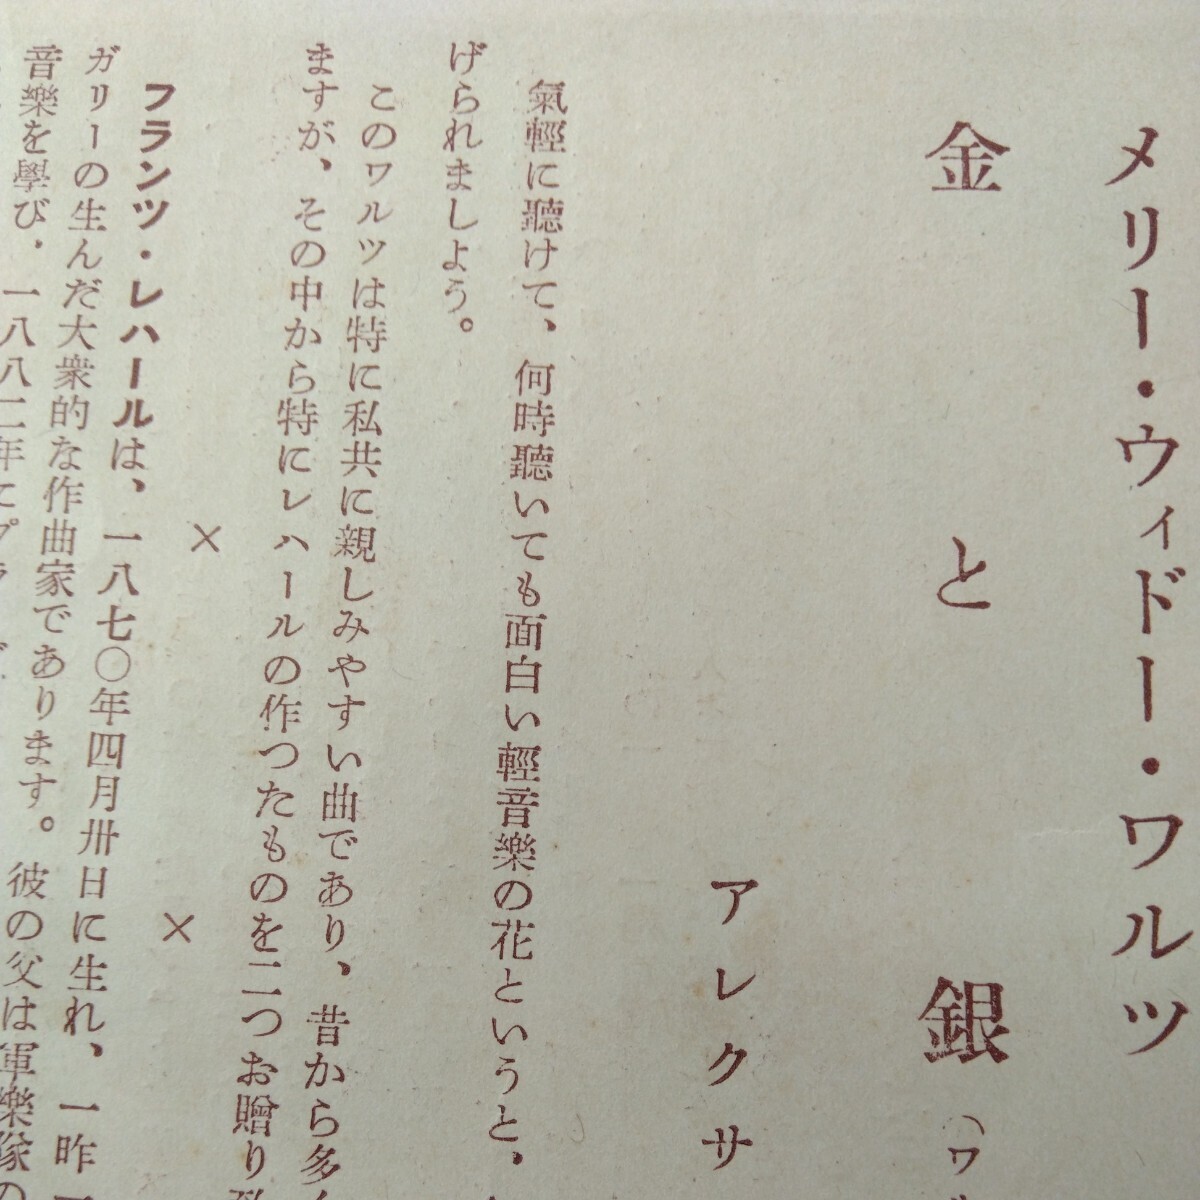 メリー・ウィドー・ワルツ
金と銀(ワル
アレクサ
氣輕に聽けて、何時聽いても面白い輕音樂の花というと、
げられましよう。
このワルツは特に私共に親しみやすい曲であり、昔から多く
ますが、その中から特にレハールの作つたものを二つお贈り致
× ×
フランツ・レハールは、一八七〇年四月卅日に生れ、一昨
ガリーの生んだ大衆的な作曲家であります。彼の父は軍樂隊の
音樂を學び、一八八二年にプラ